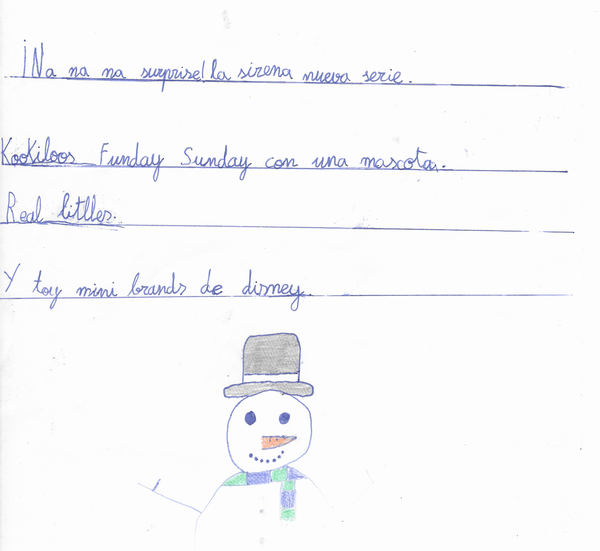 ¡Na na na surprise! la sirena nueva serie.
Kookiloos Funday Sunday con una mascota.
Real litlles.
Y toy mini brands de disney.